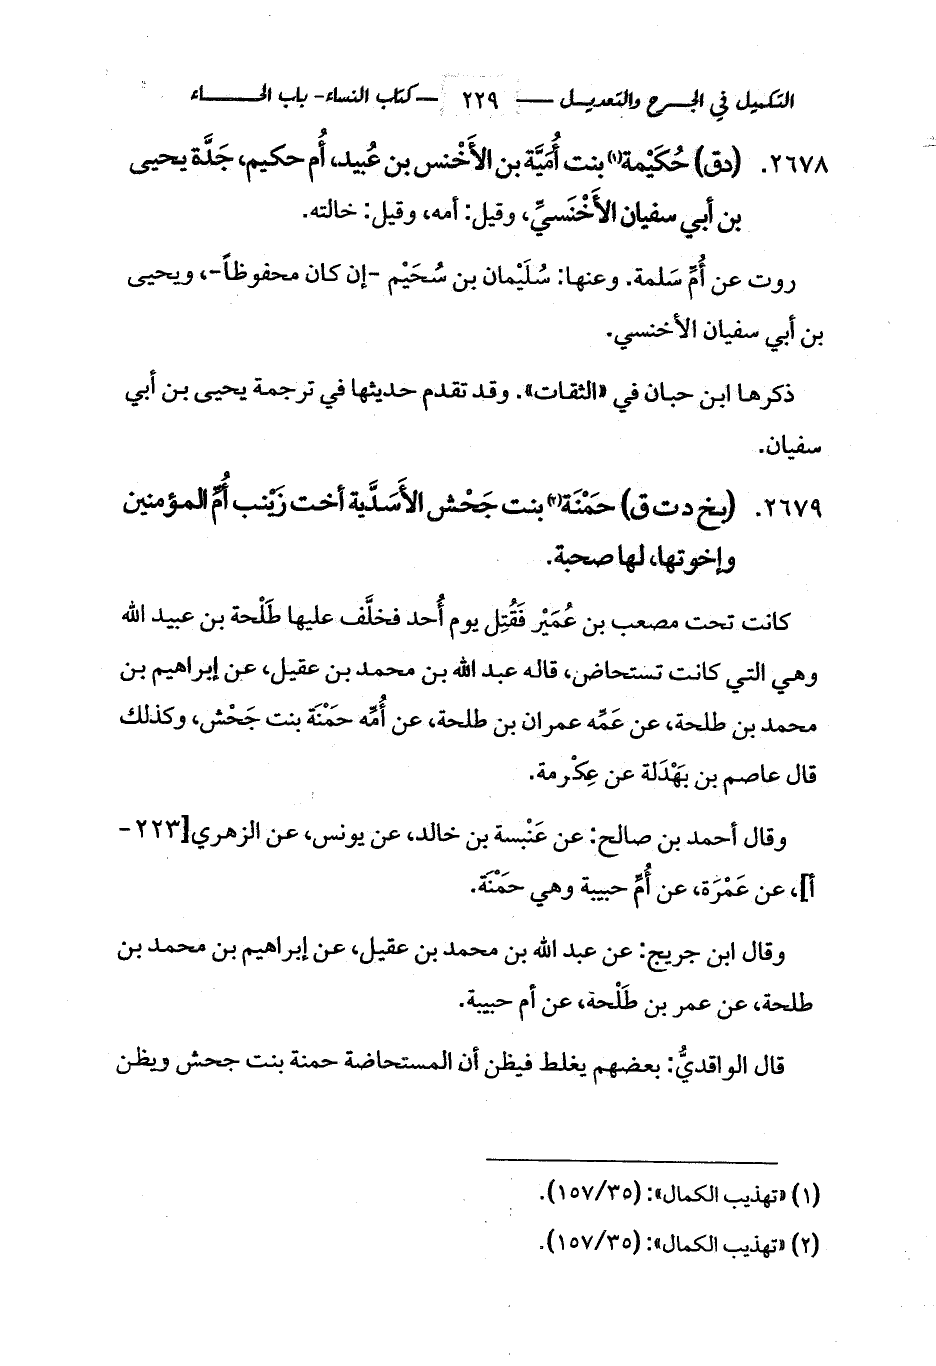 التكميل في الجرح والتعديل — ٢٢٩ — كتاب النساء- باب الحاء
٢٦٧٨. (دق) حُكَيْمة(١) بنت أُمَيَّة بن الأَخْنس بن عُبيد، أُم حكيم، جَدَّة يحيى
بن أبي سفيان الأَخْنَسيِّ، وقيل: أمه، وقيل: خالته.
روت عن أُمِّ سَلمة. وعنها: سُلَيْمان بن سُحَيْم -إن كان محفوظاً-، ويحيى
بن أبي سفيان الأخنسي.
ذكرها ابن حبان في «الثقات». وقد تقدم حديثها في ترجمة يحيى بن أبي
سفيان.
٢٦٧٩. (بخ د ت ق) حَمْنَة(٢) بنت جَحْش الأَسَدَّية أخت زَيْنب أُمِّ المؤمنين
وإخوتها، لها صحبة.
كانت تحت مصعب بن عُمَيْر فَقُتِل يوم أُحد فخلَّف عليها طَلْحة بن عبيد الله
وهي التي كانت تستحاض، قاله عبد الله بن محمد بن عقيل، عن إبراهيم بن
محمد بن طلحة، عن عَمِّه عمران بن طلحة، عن أُمِّه حَمْنَة بنت جَحْش، وكذلك
قال عاصم بن بَهْدَلة عن عِكْرمة.
وقال أحمد بن صالح: عن عَنْبسة بن خالد، عن يونس، عن الزهري[٢٢٣-
أ]، عن عَمْرَة، عن أُمِّ حبيبة وهي حَمْنَة.
وقال ابن جريج: عن عبد الله بن محمد بن عقيل، عن إبراهيم بن محمد بن
طلحة، عن عمر بن طَلْحة، عن أم حبيبة.
قال الواقديُّ: بعضهم يغلط فيظن أن المستحاضة حمنة بنت جحش ويظن
(١) «تهذيب الكمال»: (١٥٧/٣٥).
(٢) «تهذيب الكمال»: (١٥٧/٣٥).